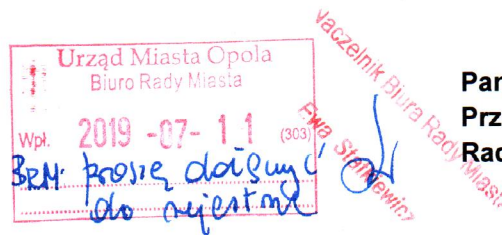 Urząd Miasta Opola
Biuro Rady Miasta
Wpł. 2019 -07- 11 (303)
BRM: proszę dołączyć
do rejestru
Naczelnik Biura Rady Miasta
Ewa Stankiewicz
Pan
Prz
Rad